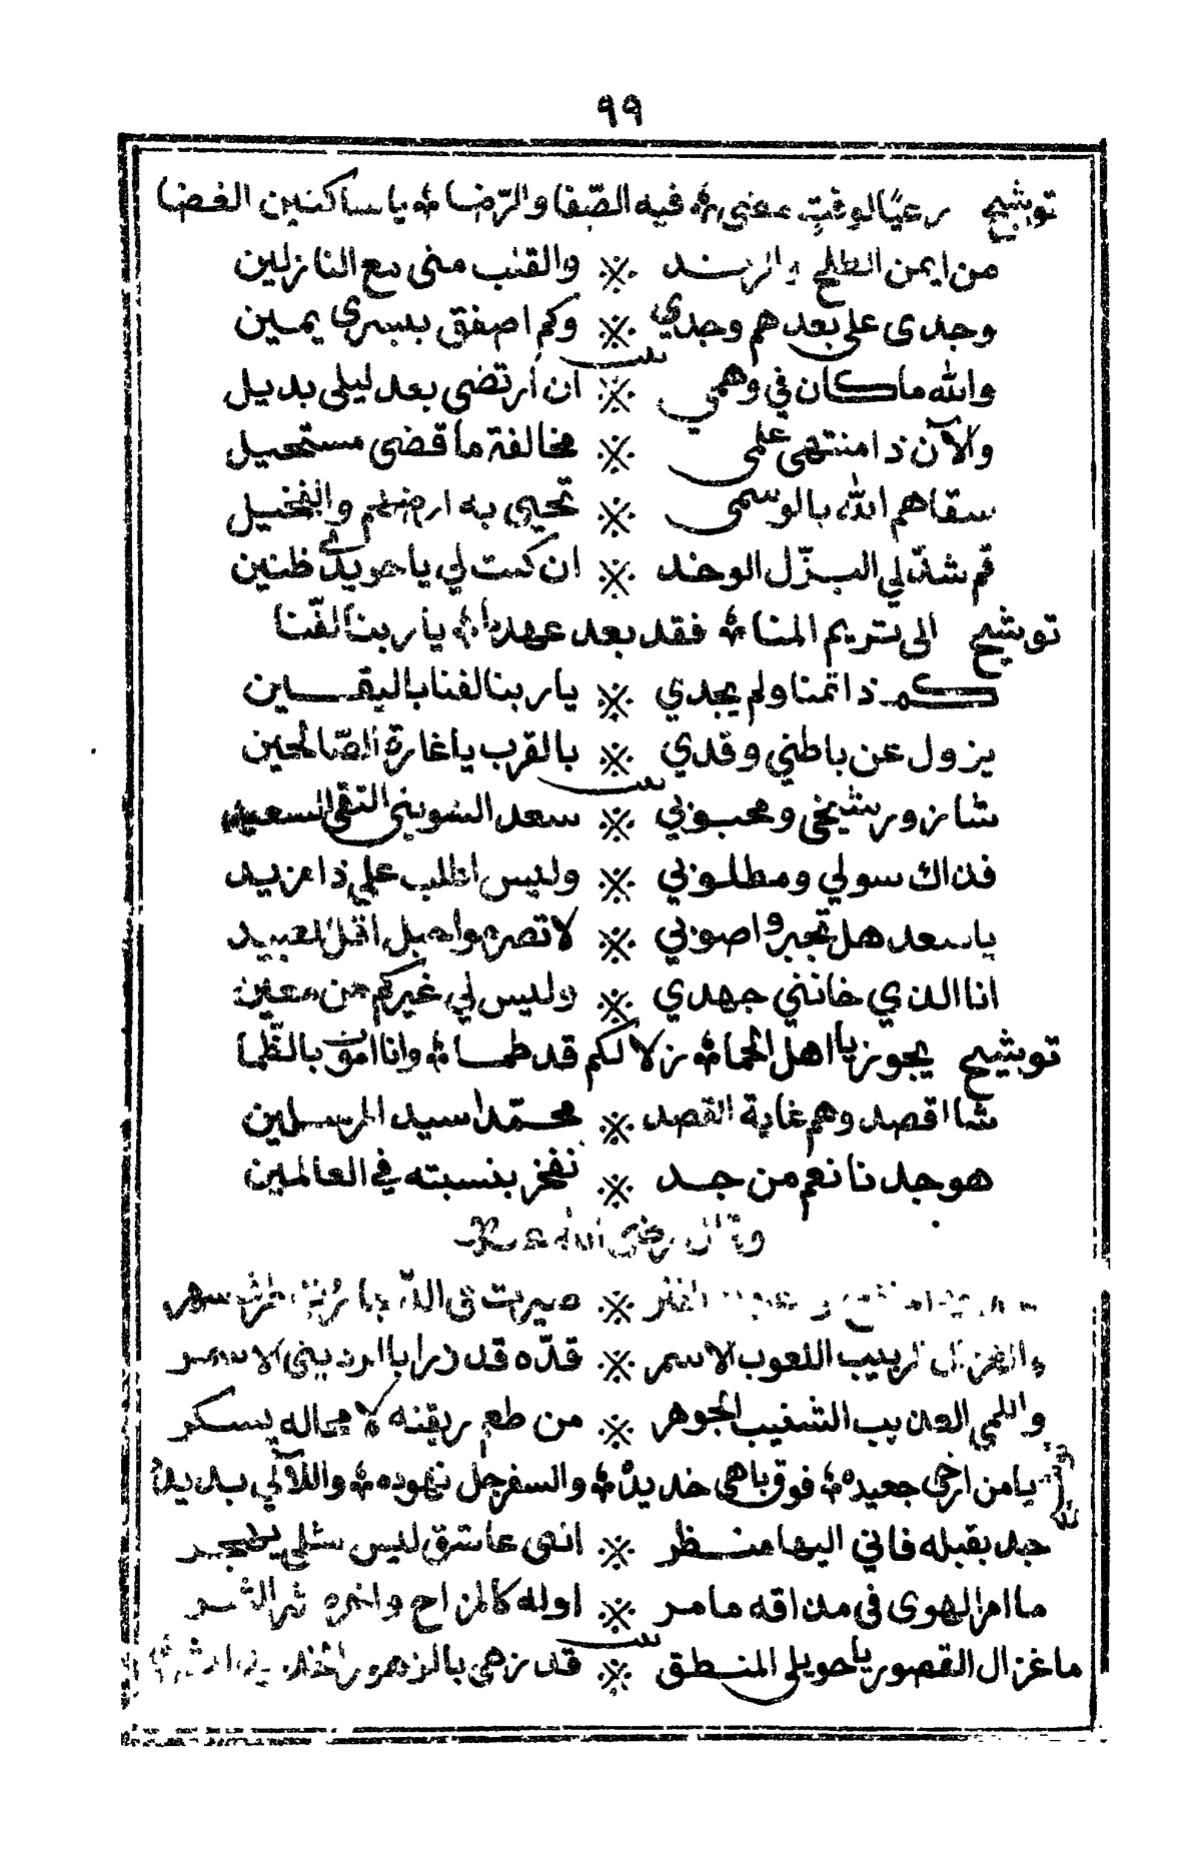 ٩٩
توشيح رعيًا لوقتٍ مضى ۞ فيه الصّفا والرّضا ۞ يا ساكنين الغضا
من ايمن الطلح والرند ※ والقلب منى مع النازلين
وجدى على بعدهم وجدي ※ وكم اصفق بيسرى يمين
بيت
والله ما كان في وهمي ※ ان ارتضى بعد ليلى بديل
والآن ذا منتهى علمي ※ مخالفة ما قضى مستحيل
سقاهم الله بالوسمى ※ تحيى به ارضهم والنخيل
قم شدّ لي البزّل الوخد ※ ان كنت لي يا حويدى ظنين
توشيح الى تريم المنا ۞ فقد بعد عهدنا ۞ يا ربنا الفّنا
كم ذا تمنا ولم يجدي ※ يا ربنا لفنا باليقين
يزول عن باطني وقدي ※ بالقرب يا غارة الصّالحين
بيت
شازور شيخى ومحبوبي ※ سعد السوينى التقى السعيد
فذاك سولي ومطلوبي ※ وليس اطلب على ذا مزيد
يا سعد هل تجبر واصوبي ※ لا تصرموا حبل اقل العبيد
انا الذي خانني جهدي ※ وليس لي غيركم من معين
توشيح يجوز يا اهل الحما ۞ زلالكم قد طما ۞ وانا اموت بالظّما
شا اقصد وهم غاية القصد ※ محمّدا سيد المرسلين
هو جدنا نعم من جد ※ نفخر بنسبته في العالمين
وقال رضى الله عنه
※ صيرت فى الدّجا
والغزال الربيب اللعوب الاسمر ※ قدّه قد زرا بالرديني الاسمر
واللمى العذيب الشنيب الجوهر ※ من طعم ريقته لا محاله يسكر
توشيح يا من ارخى جعيده ۞ فوق باهى خديده ۞ والسفرجل نهوده ۞ واللآلي بديده
جد بقبله فاني اليها منظر ※ اننى عاشق ليس مثلى يهجر
ما امر الهوى فى مذاقه ما مر ※ اوله كالمزاح واخره
بيت
ما غزال القصور يا حويلى المنطق ※ قد زهى بالزهور